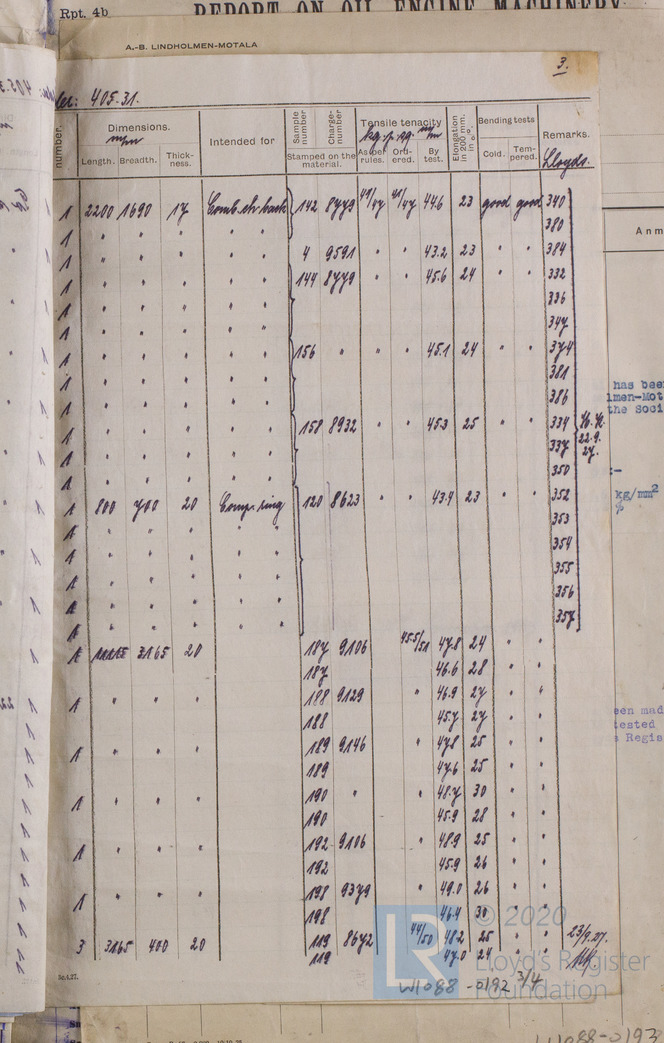 Rpt. 4b
REPORT ON OIL ENGINE MACHINERY
A.-B. LINDHOLMEN-MOTALA
3.
405.31.
number. Dimensions. mm Intended for Sample number Charge-number Tensile tenacity kg. p. sq. mm Elongation in 200 mm. in %. Bending tests Remarks. Lloyds.
Length. Breadth. Thick-ness. Stamped on the material. As per rules. Ord-ered. By test. Cold. Tem-pered.
1 2200 1690 17 142 8779 41/47 41/47 44.6 23 good good 340
1 " " " " " 380
1 " " " " " 4 9591 " " 43.2 23 " " 384
1 " " " " " 144 8779 " " 45.6 24 " " 332
1 " " " " " 336
1 " " " " " 347
1 " " " " " 156 " " " 45.1 24 " " 374
1 " " " " " 381
1 " " " " " 386
1 " " " " " 158 8932 " " 45.3 25 " " 334
1 " " " " " 337 22.9.27.
1 " " " " " 350
1 800 700 20 Comp. ring 120 8623 " " 43.4 23 " " 352
1 " " " " " 353
1 " " " " " 354
1 " " " " " 355
1 " " " " " 356
1 " " " " " 357
1 3165 20 187 9106 45.5/51 47.8 24 " "
187 46.6 28 " "
1 " " " 188 9129 " 46.9 27 " "
188 45.7 27 " "
1 " " " 189 9146 " 47.8 25 " "
189 47.6 25 " "
1 " " " 190 " " 48.7 30 " "
190 45.9 28 " "
1 " " " 192 9106 " 48.9 25 " "
192 45.9 26 " "
1 " " " 198 9379 " 49.0 26 " "
198 46.4 30 " "
3 3165 400 20 119 8672 44/50 48.2 25 " " 23/9.27.
119 47.0 24 " "
LR © 2020
Lloyd's Register
Foundation
W1088-0192 3/4
Anm
has been
lmen-Mot
the Soci
kg/mm²
%
een made
tested
Regis
W1088-0193